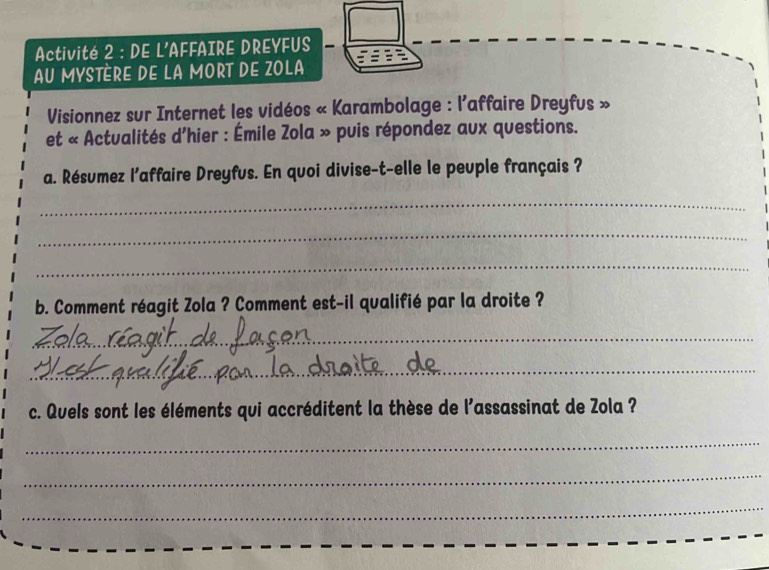 Activité 2 : DE L'AFFAIRE DREYFUS
AU MYSTÈRE DE LA MORT DE ZOLA
Visionnez sur Internet les vidéos « Karambolage : l'affaire Dreyfus »
et « Actualités d'hier : Émile Zola » puis répondez aux questions.
a. Résumez l'affaire Dreyfus. En quoi divise-t-elle le peuple français ?
b. Comment réagit Zola ? Comment est-il qualifié par la droite ?
Zola réagit de façon
Il est qualifié par la droite de
c. Quels sont les éléments qui accréditent la thèse de l'assassinat de Zola ?